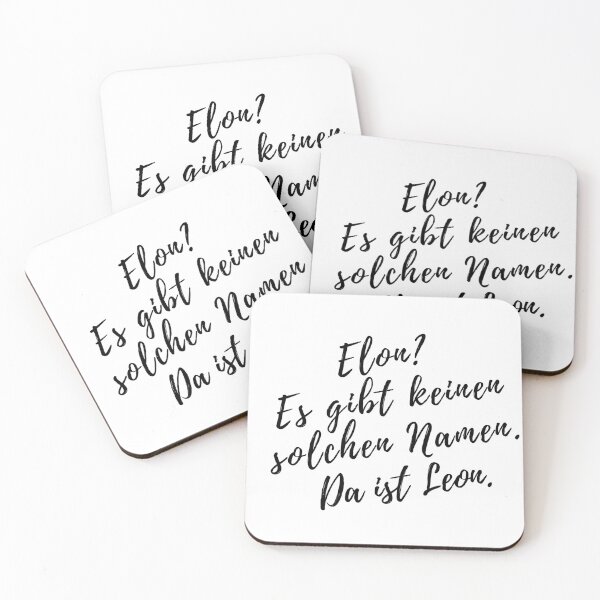 Elon?
Es gibt keinen
Elon?
Es gibt keinen
solchen Namen.
Leon.
Elon?
Es gibt keinen
solchen Namen
Da ist
Elon?
Es gibt keinen
solchen Namen.
Da ist Leon.